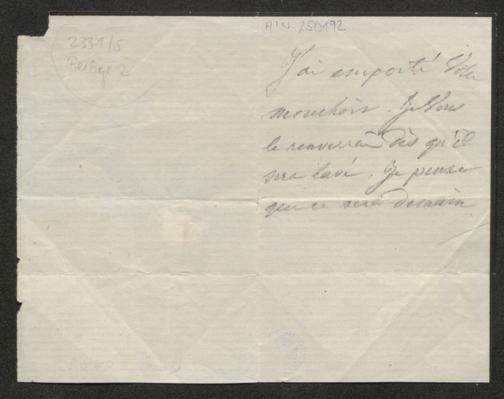 H.I.N. 250192
2331/5
Beilage 2
J'ai emporté Votre
mouchoir. Je Vous
le renverrai dès qu'il
sera lavé. Je pense
que ce sera demain